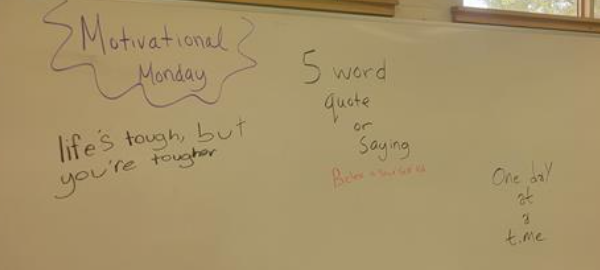 Motivational
Monday
life's tough, but
you're tougher
5 word
quote
or
Saying
One day
at
a
time